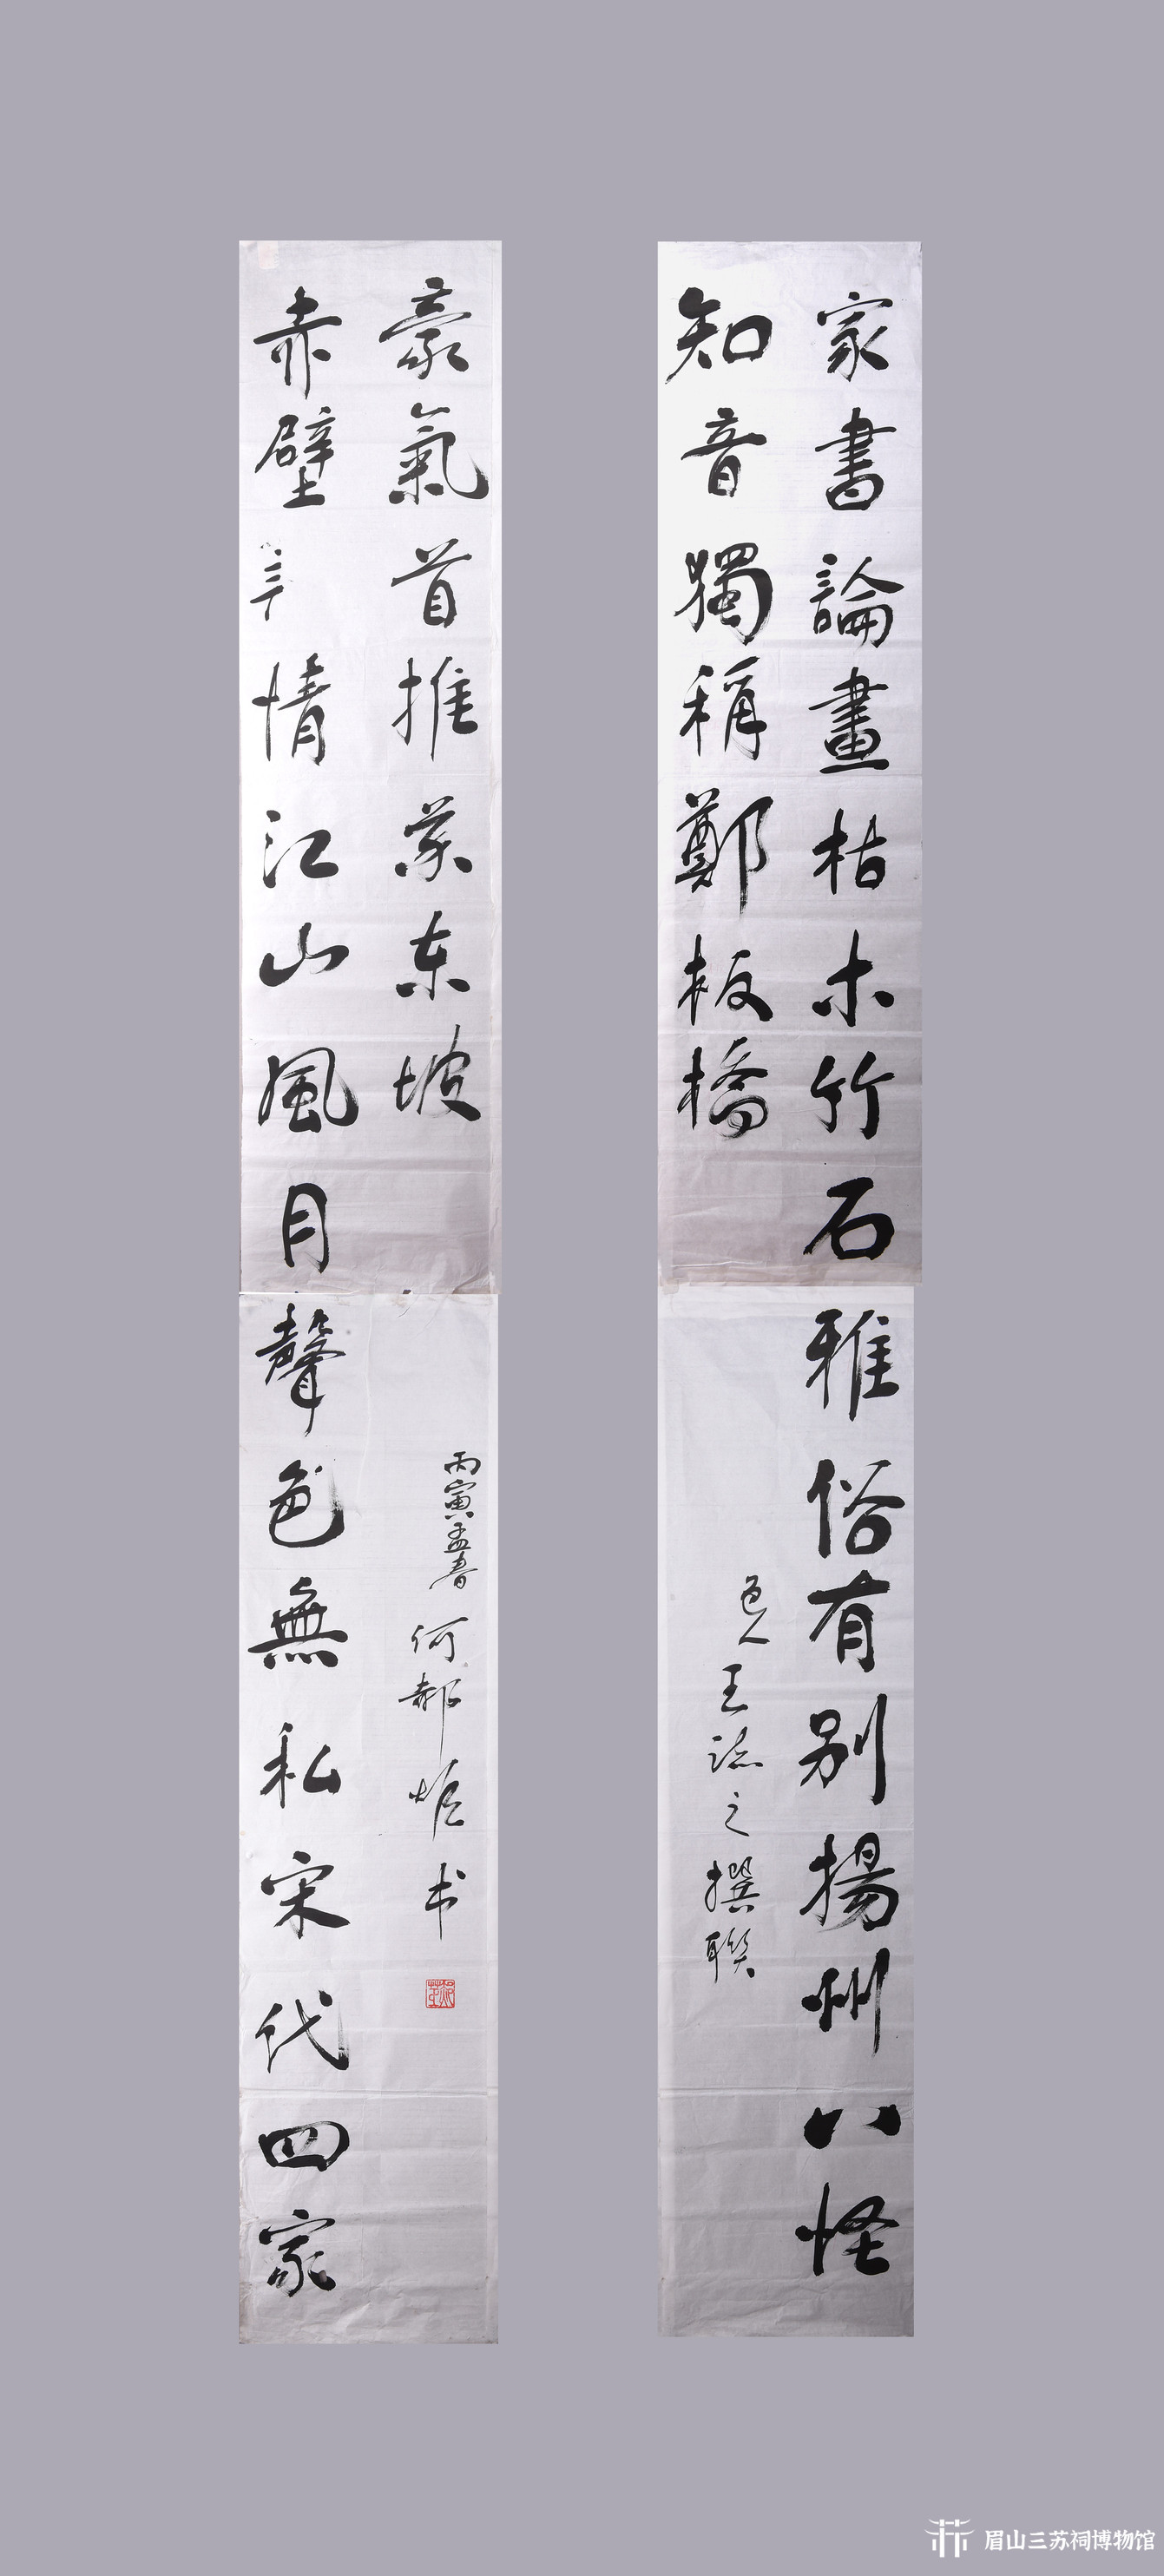 家書論畫枯木竹石雅俗有别揚州八怪
知音獨稱鄭板橋
邑人王誌之撰聯
赤壁情江山風月聲色無私宋代四家
豪氣首推苏东坡
丙寅孟春何郝炬书
眉山三苏祠博物馆